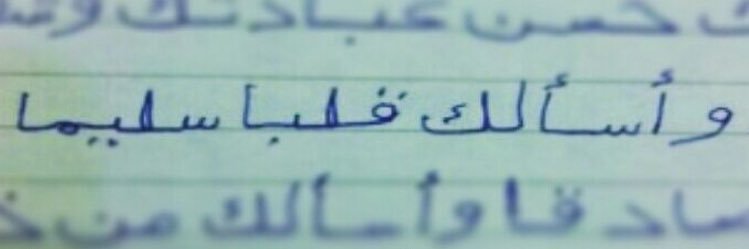 ك حسن عبادتك
وأسألك قلبا سليما
صادقا وأسألك من خ